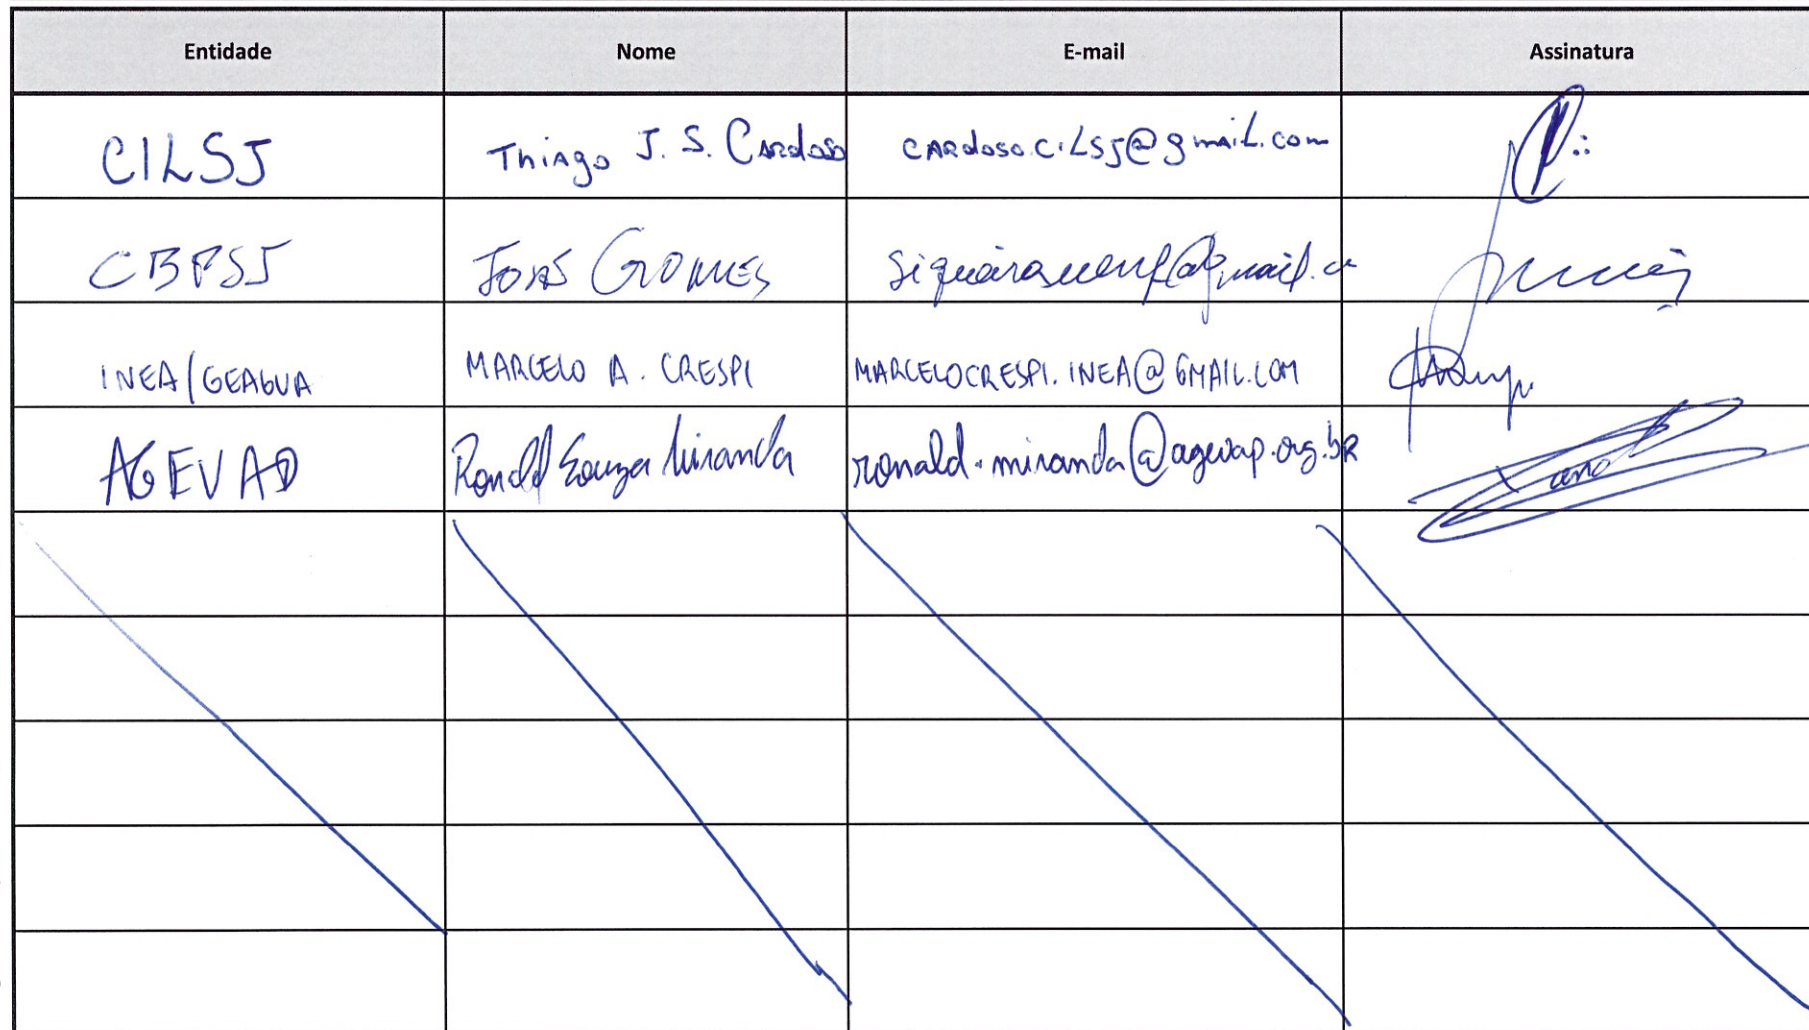 Entidade Nome E-mail Assinatura
CILSJ Thiago J. S. Cardoso cardoso.cilsj@gmail.com
José Gomes
INEA/GEAGUA MARCELO A. CRESPI MARCELOCRESPI.INEA@GMAIL.COM
AGEVAP Ronald Souza Miranda ronald.miranda@agevap.org.br